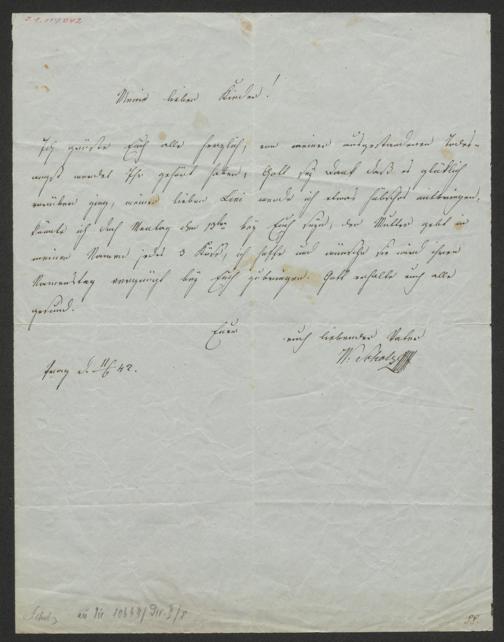 Meine lieben Kinder!
Ich grüße Euch alle herzlich, von meiner ausgestandenen Todes-
angst werdet Ihr gehört haben, Gott sey Dank daß es glücklich
vorüber ging, meiner lieben Lini werde ich etwas hübsches mitbringen,
könnte ich doch Montag den 13ten bey Euch seyn, der Mutter gebt in
meinen Namen jedes 3 Küsse, ich hoffe und wünsche sie wird ihren
Namenstag vergnügt bey Euch zubringen. Gott erhalte euch alle
gesund.
Euer euch liebender Vater
W. Scholz
Prag d. 11/6 42.
Scholz